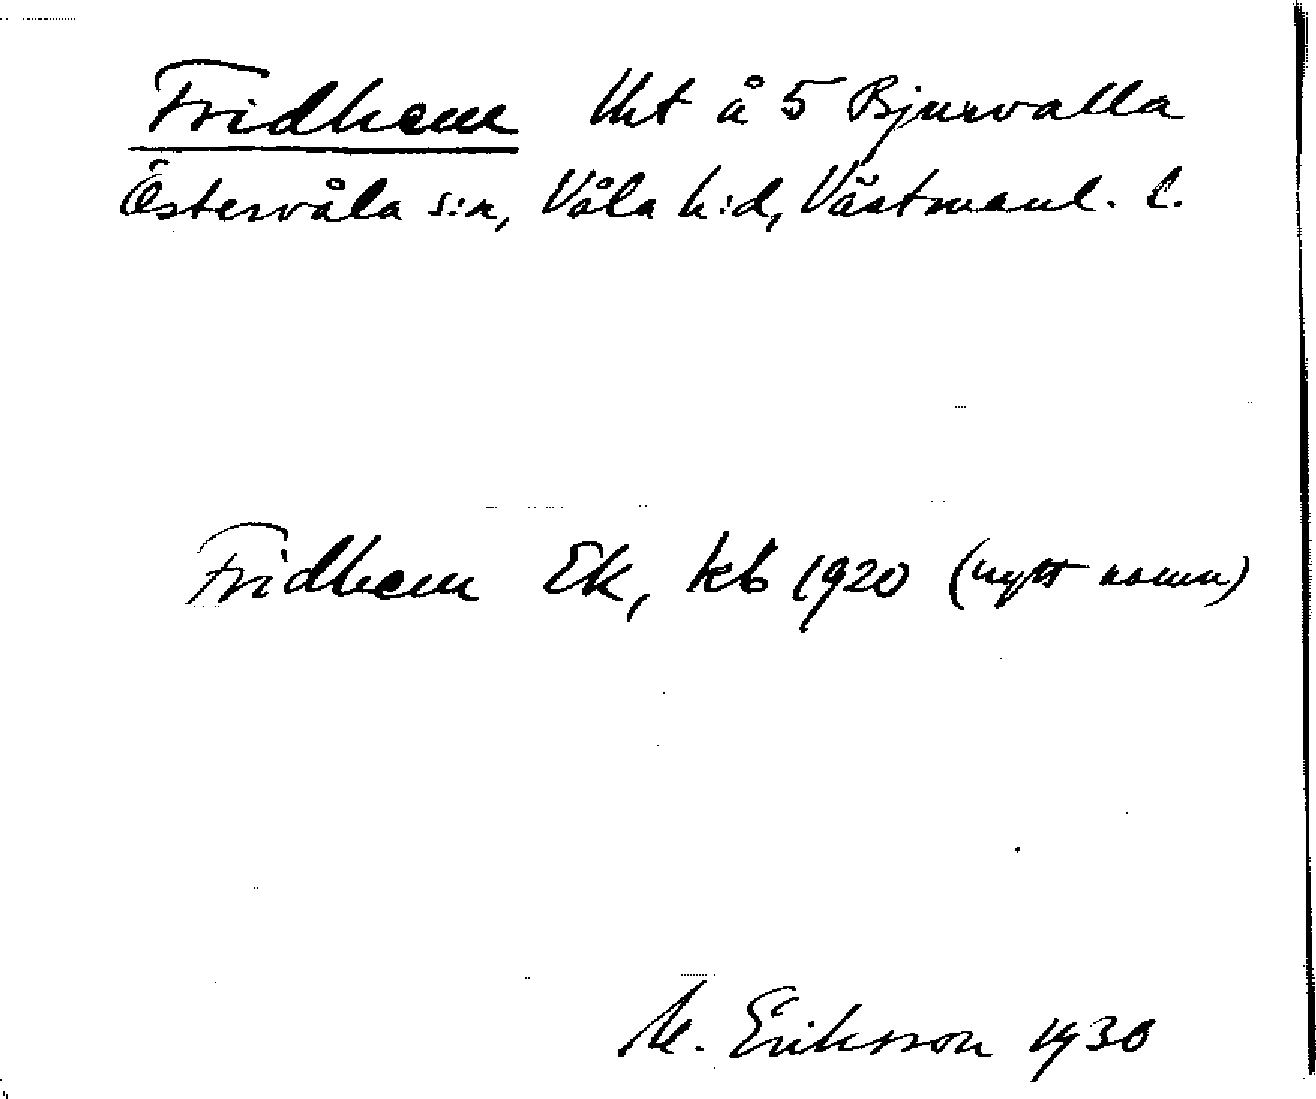 Fridhem Uht å 5 Bjurvalla
Östervåla s:n, Våla h:d, Västmanl. l.
Fridhem Ek, kb 1920 (nytt namn)
M. Eriksson 1930